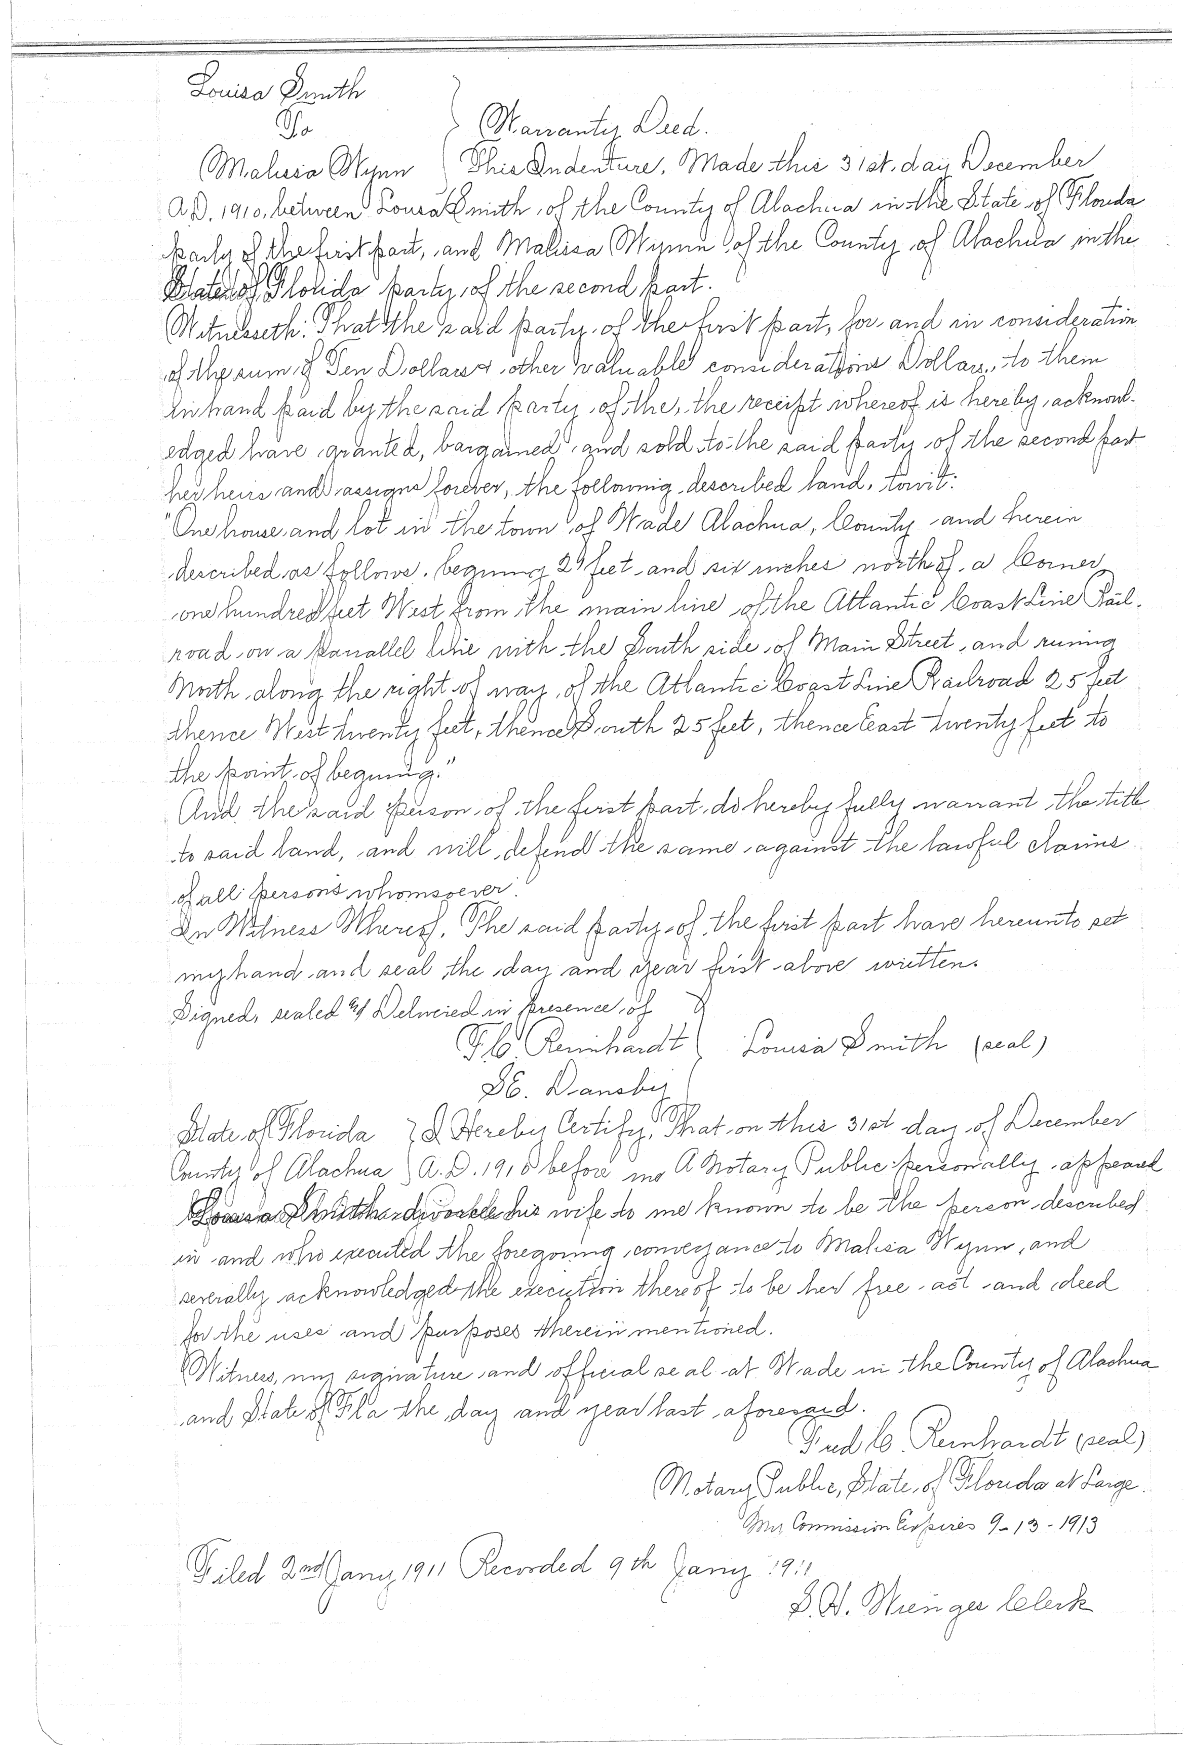 Louisa Smith
To
Warranty Deed.
Malissa Wynn This Indenture, Made this 31st. day December
A.D. 1910, between Louisa Smith of the County of Alachua in the State of Florida
party of the first part, and Malissa Wynn of the County of Alachua in the
State of Florida party of the second part.
Witnesseth: That the said party of the first part, for and in consideration
of the sum of Ten Dollars & other valuable considerations Dollars, to them
in hand paid by the said party of the, the receipt whereof is hereby acknowl-
edged have granted, bargained and sold to the said party of the second part
her heirs and assigns forever, the following described land, towit:
"One house and lot in the town of Wade Alachua, County and herein
described as follows. begining 29 feet and six inches north of a Corner
one hundred feet West from the main line of the Atlantic Coast Line Rail.
road on a parallel line with the South side of Main Street, and runing
North along the right of way of the Atlantic Coast Line Railroad 25 feet
thence West twenty feet, thence South 25 feet, thence East twenty feet to
the point of begining."
And the said person of the first part do hereby fully warrant the title
to said land, and will defend the same against the lawful claims
of all persons whomsoever.
In Witness Whereof, The said party of the first part have hereunto set
my hand and seal the day and year first above written.
Signed, sealed and Delivered in presence of
F.C. Reinhardt Louisa Smith (seal)
S.E. Dansby
State of Florida I Hereby Certify, That on this 31st day of December
County of Alachua A.D. 1910 before me A Notary Public personally appeared
Louisa Smith his wife to me known to be the person described
in and who executed the foregoing conveyance to Malisa Wynn, and
severally acknowledged the execution thereof to be her free act and deed
for the uses and purposes therein mentioned.
Witness my signature and official seal at Wade in the County of Alachua
and State of Fla the day and year last aforesaid.
Fred C. Reinhardt (seal)
Notary Public, State of Florida at Large.
My Commission Expires 9-13-1913
Filed 2nd Jany 1911 Recorded 9th Jany 1911
S.H. Wienges Clerk